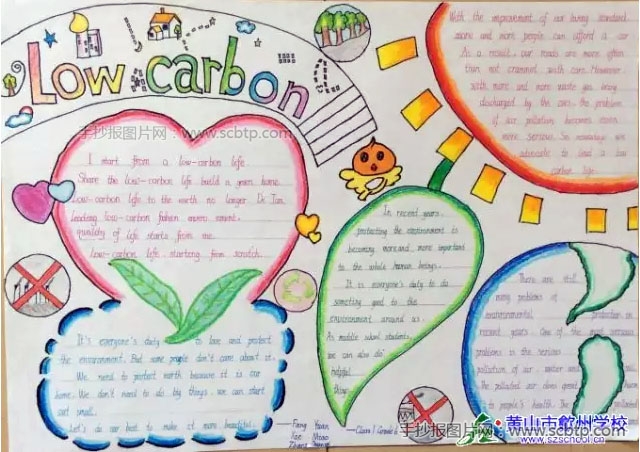 Low carbon
手抄报图片网:www.scbtp.com
I start from a low-carbon life.
Share the low-carbon life build a green home.
Low-carbon life to the earth no longer
Leading low-carbon
of life starts from me.
low-carbon life, starting from scratch.
It's everyone's duty to love and protect
the environment. But some people don't care about it.
We need to protect earth because it is our
home. We don't need to do big things. we can start
out small.
Let's do our best to make it more beautiful.
In recent years,
protecting the environment is
becoming more and more important
to the whole human beings.
It is everyone's duty to do
something good to the
environment around us.
As middle school students,
we can also do
helpful
things.
With the improvement of our living standard
more and more people can afford a car
As a result, our roads are more often
than not crammed with cars. However,
with more and more waste gas being
discharged by the cars, the problem
of air pollution becomes even
more serious. So nowadays we
advocate to lead a low
carbon life
There are still
many problems of
environmental protection in
recent years. One of the most serious
problems is the serious
pollution of air, water and
The polluted air does great
to people's health. The polluted
Fang Yuan
Class 1 Grade 6
黄山市歙州学校
手抄报图片网:www.scbtp.com
www.szschool.cn